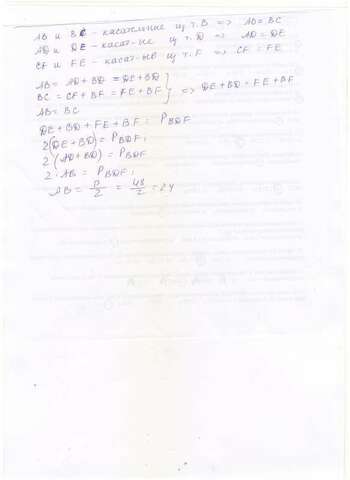 AB и BC - касательные из т. B => AB = BC
AD и DE - касат-ые из т. D => AD = DE
CF и FE - касат-ые из т. F => CF = FE
AB = AD + BD = DE + BD
BC = CF + BF = FE + BF } => DE + BD = FE + BF
AB = BC
DE + BD + FE + BF = P BDF
2(DE + BD) = P BDF;
2(AD + BD) = P BDF
2 · AB = P BDF;
AB = P/2 = 48/2 = 24